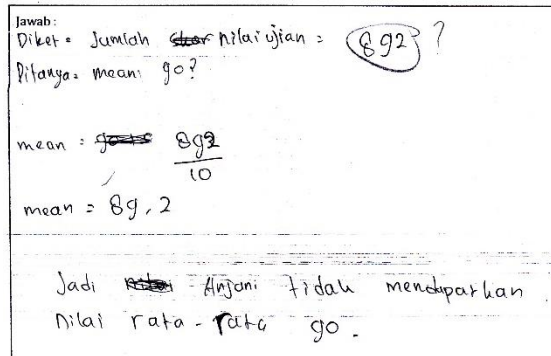 Jawab :
Diket = Jumlah nilai ujian = 892 ?
Ditanya = mean 90?
mean = 892
10
mean = 89,2
Jadi Anjani tidak mendapatkan
nilai rata-rata 90.